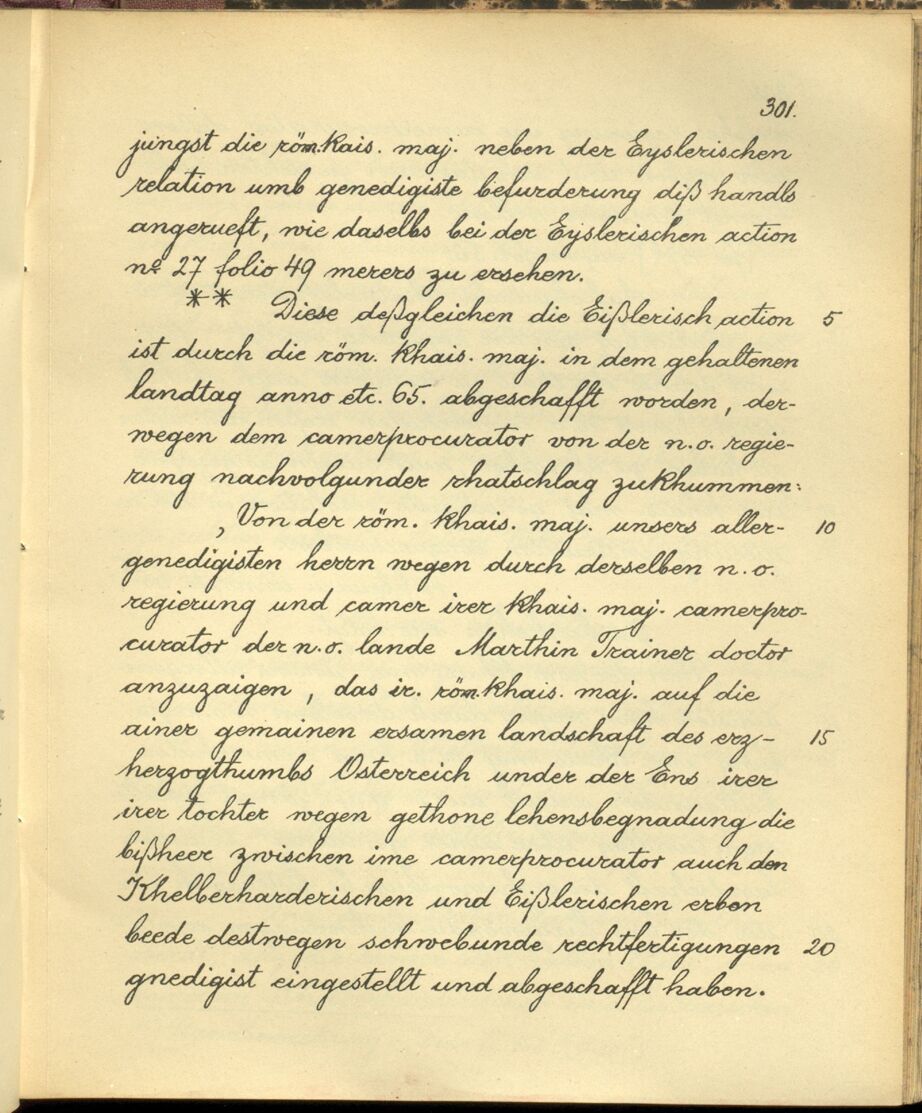 301.
jüngst die röm. kais. maj. neben der Eyslerischen
relation umb genedigiste befurderung diß handls
angerueft, wie daselbs bei der Eyslerischen action
no 27 folio 49 merers zu ersehen.
** Diese deßgleichen die Eißlerisch action 5
ist durch die röm. khais. maj. in dem gehaltenen
landtag anno etc. 65. abgeschafft worden, der-
wegen dem camerprocurator von der n.o. regie-
rung nachvolgunder rhatschlag zukhummen:
, Von der röm. khais. maj. unsers aller- 10
genedigisten herrn wegen durch derselben n.o.
regierung und camer irer khais. maj. camerpro-
curator der n.o. lande Marthin Trainer doctor
anzuzaigen, das ir. röm. khais. maj. auf die
ainer gemainen ersamen landschaft des erz- 15
herzogthumbs Osterreich under der Ens irer
irer tochter wegen gethone lehensbegnadung die
bißheer zwischen ime camerprocurator auch den
Khelberharderischen und Eißlerischen erben
beede destwegen schwebunde rechtfertigungen 20
gnedigist eingestellt und abgeschafft haben.